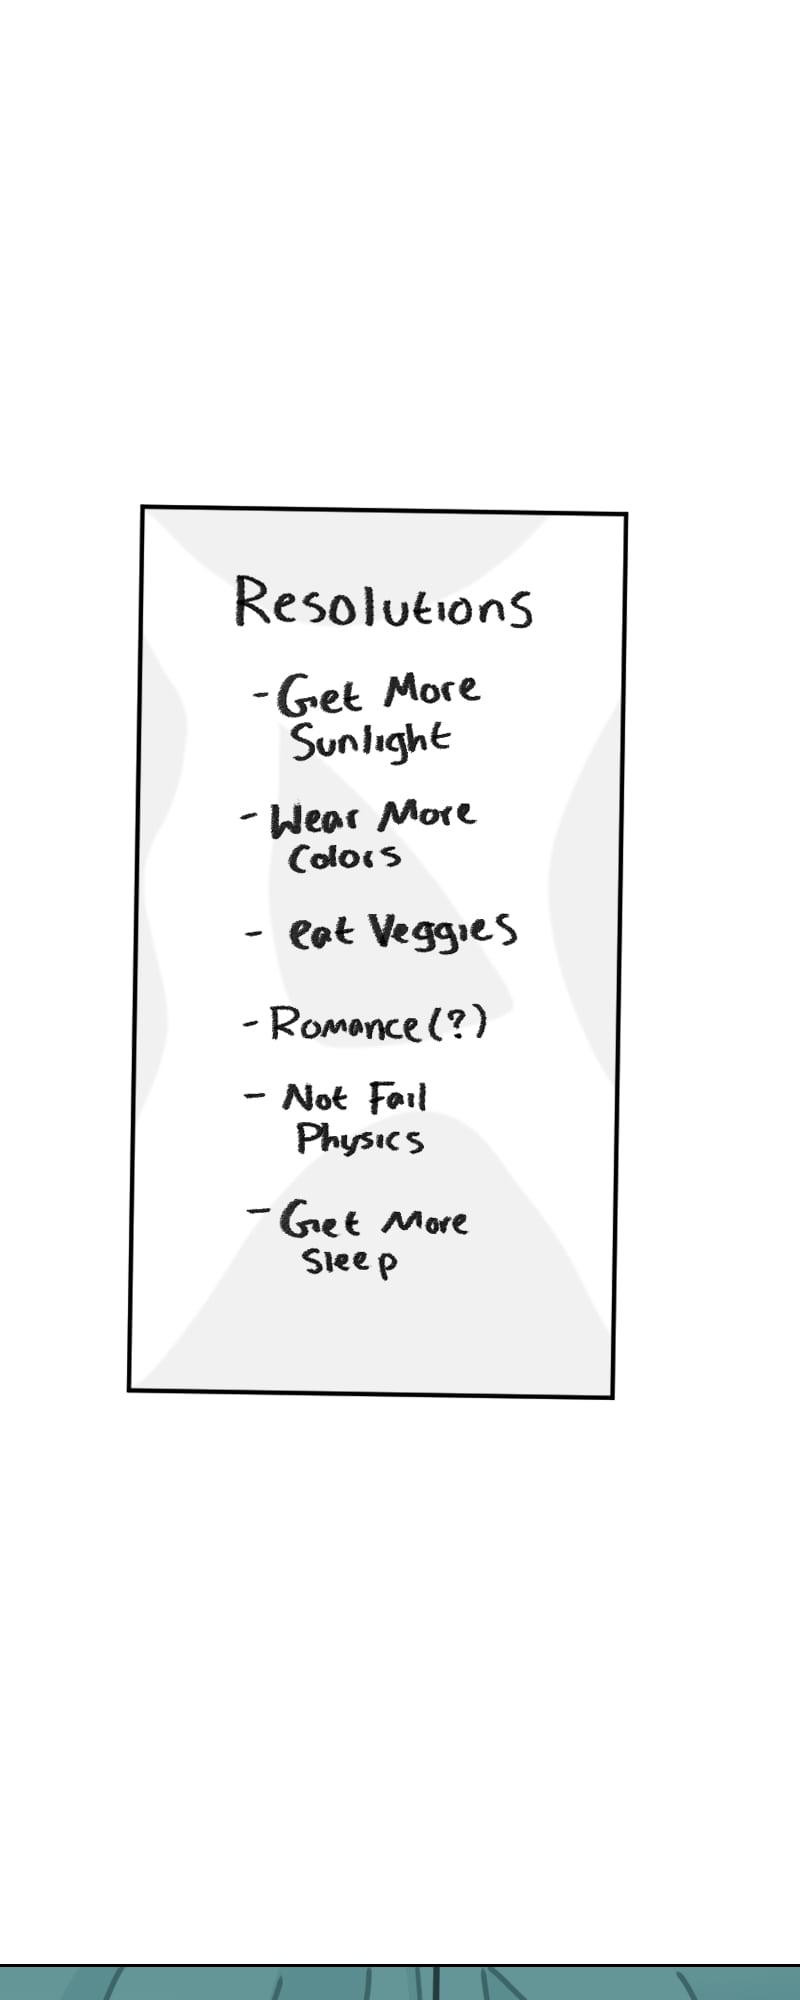 Resolutions
- Get More
Sunlight
- Wear More
Colors
- eat Veggies
- Romance (?)
- Not Fail
Physics
- Get More
Sleep